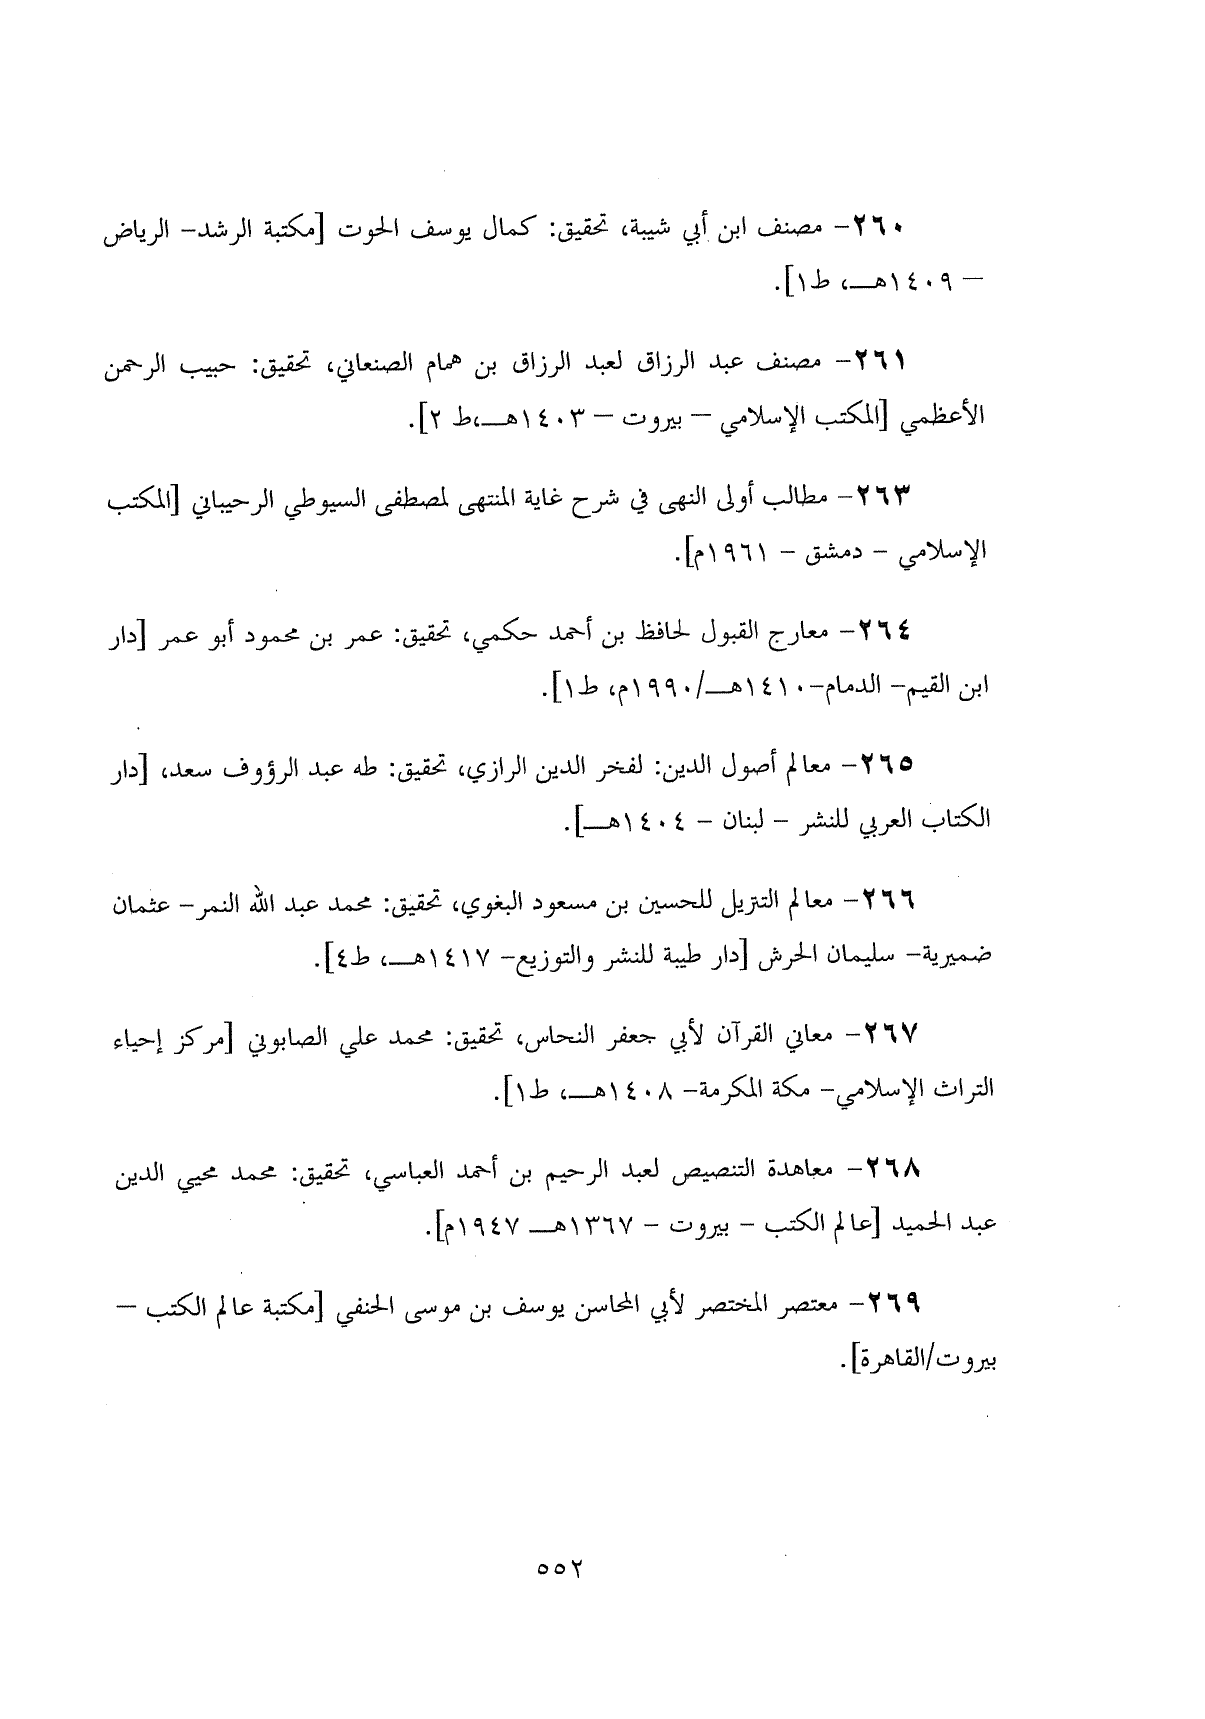 ٢٦٠- مصنف ابن أبي شيبة، تحقيق: كمال يوسف الحوت [مكتبة الرشد- الرياض
– ١٤٠٩هـ، ط١].
٢٦١- مصنف عبد الرزاق لعبد الرزاق بن همام الصنعاني، تحقيق: حبيب الرحمن
الأعظمي [المكتب الإسلامي – بيروت – ١٤٠٣هـ،ط ٢].
٢٦٣- مطالب أولى النهى في شرح غاية المنتهى لمصطفى السيوطي الرحيباني [المكتب
الإسلامي – دمشق – ١٩٦١م].
٢٦٤- معارج القبول لحافظ بن أحمد حكمي، تحقيق: عمر بن محمود أبو عمر [دار
ابن القيم- الدمام-١٤١٠هـ/١٩٩٠م، ط١].
٢٦٥- معالم أصول الدين: لفخر الدين الرازي، تحقيق: طه عبد الرؤوف سعد، [دار
الكتاب العربي للنشر – لبنان – ١٤٠٤هـ].
٢٦٦- معالم التنزيل للحسين بن مسعود البغوي، تحقيق: محمد عبد الله النمر- عثمان
ضميرية- سليمان الحرش [دار طيبة للنشر والتوزيع- ١٤١٧هـ، ط٤].
٢٦٧- معاني القرآن لأبي جعفر النحاس، تحقيق: محمد علي الصابوني [مركز إحياء
التراث الإسلامي- مكة المكرمة- ١٤٠٨هـ، ط١].
٢٦٨- معاهدة التنصيص لعبد الرحيم بن أحمد العباسي، تحقيق: محمد محيي الدين
عبد الحميد [عالم الكتب – بيروت – ١٣٦٧هـ ١٩٤٧م].
٢٦٩- معتصر المختصر لأبي المحاسن يوسف بن موسى الحنفي [مكتبة عالم الكتب –
بيروت/القاهرة].
٥٥٢